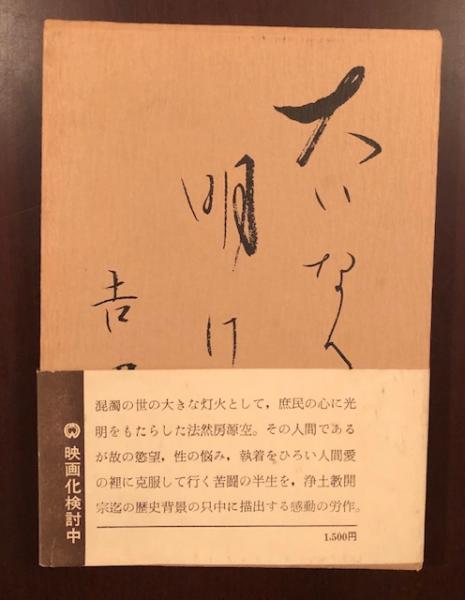 大いなる
明け
吉
混濁の世の大きな灯火として，庶民の心に光
明をもたらした法然房源空。その人間である
が故の慾望，性の悩み，執着をひろい人間愛
の裡に克服して行く苦闘の半生を，浄土教開
宗迄の歴史背景の只中に描出する感動の労作。
1,500円
映画化検討中